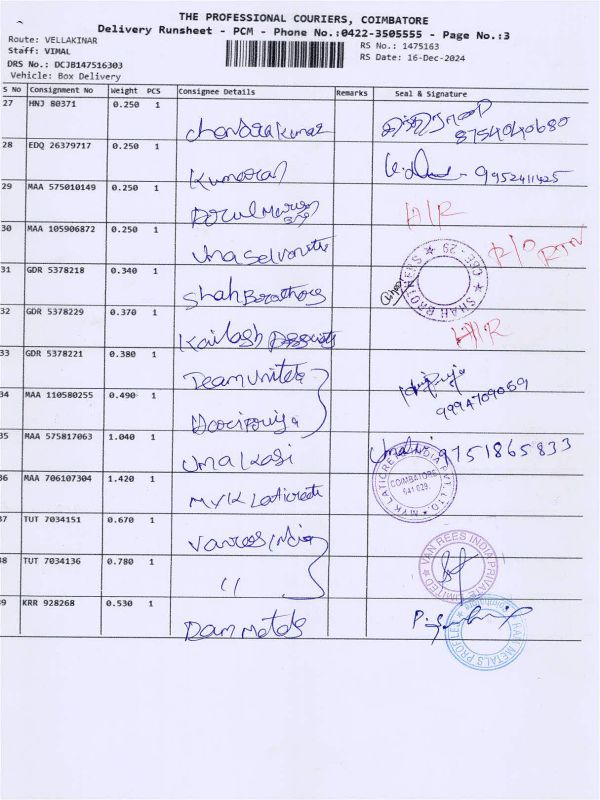 THE PROFESSIONAL COURIERS, COIMBATORE
Delivery Runsheet - PCM - Phone No.:0422-3505555 - Page No.:3
Route: VELLAKINAR
RS No.: 1475163
Staff: VIMAL
RS Date: 16-Dec-2024
DRS No.: DCJB147516303
Vehicle: Box Delivery
S No Consignment No Weight PCS Consignee Details Remarks Seal & Signature
27 HNJ 80371 0.250 1
Chandrakumar 8754040680
28 EDQ 26379717 0.250 1
Kumaran 9952411425
29 MAA 575010149 0.250 1
30 MAA 105906872 0.250 1
31 GDR 5378218 0.340 1
Shah Borothers
SHAH BROTHERS ★ CBE-29 ★
32 GDR 5378229 0.370 1
Kailash
33 GDR 5378221 0.380 1
Team
34 MAA 110580255 0.490 1
9994709069
35 MAA 575817063 1.040 1
Uma 9751865833
36 MAA 706107304 1.420 1
MYK Laticrete
MYK LATICRETE INDIA PVT. LTD.
COIMBATORE
641 029.
37 TUT 7034151 0.670 1
Vanrees India
38 TUT 7034136 0.780 1
"
VAN REES INDIA PRIVATE LIMITED ★
39 KRR 928268 0.530 1
Metals
RAM METALS PROFILE